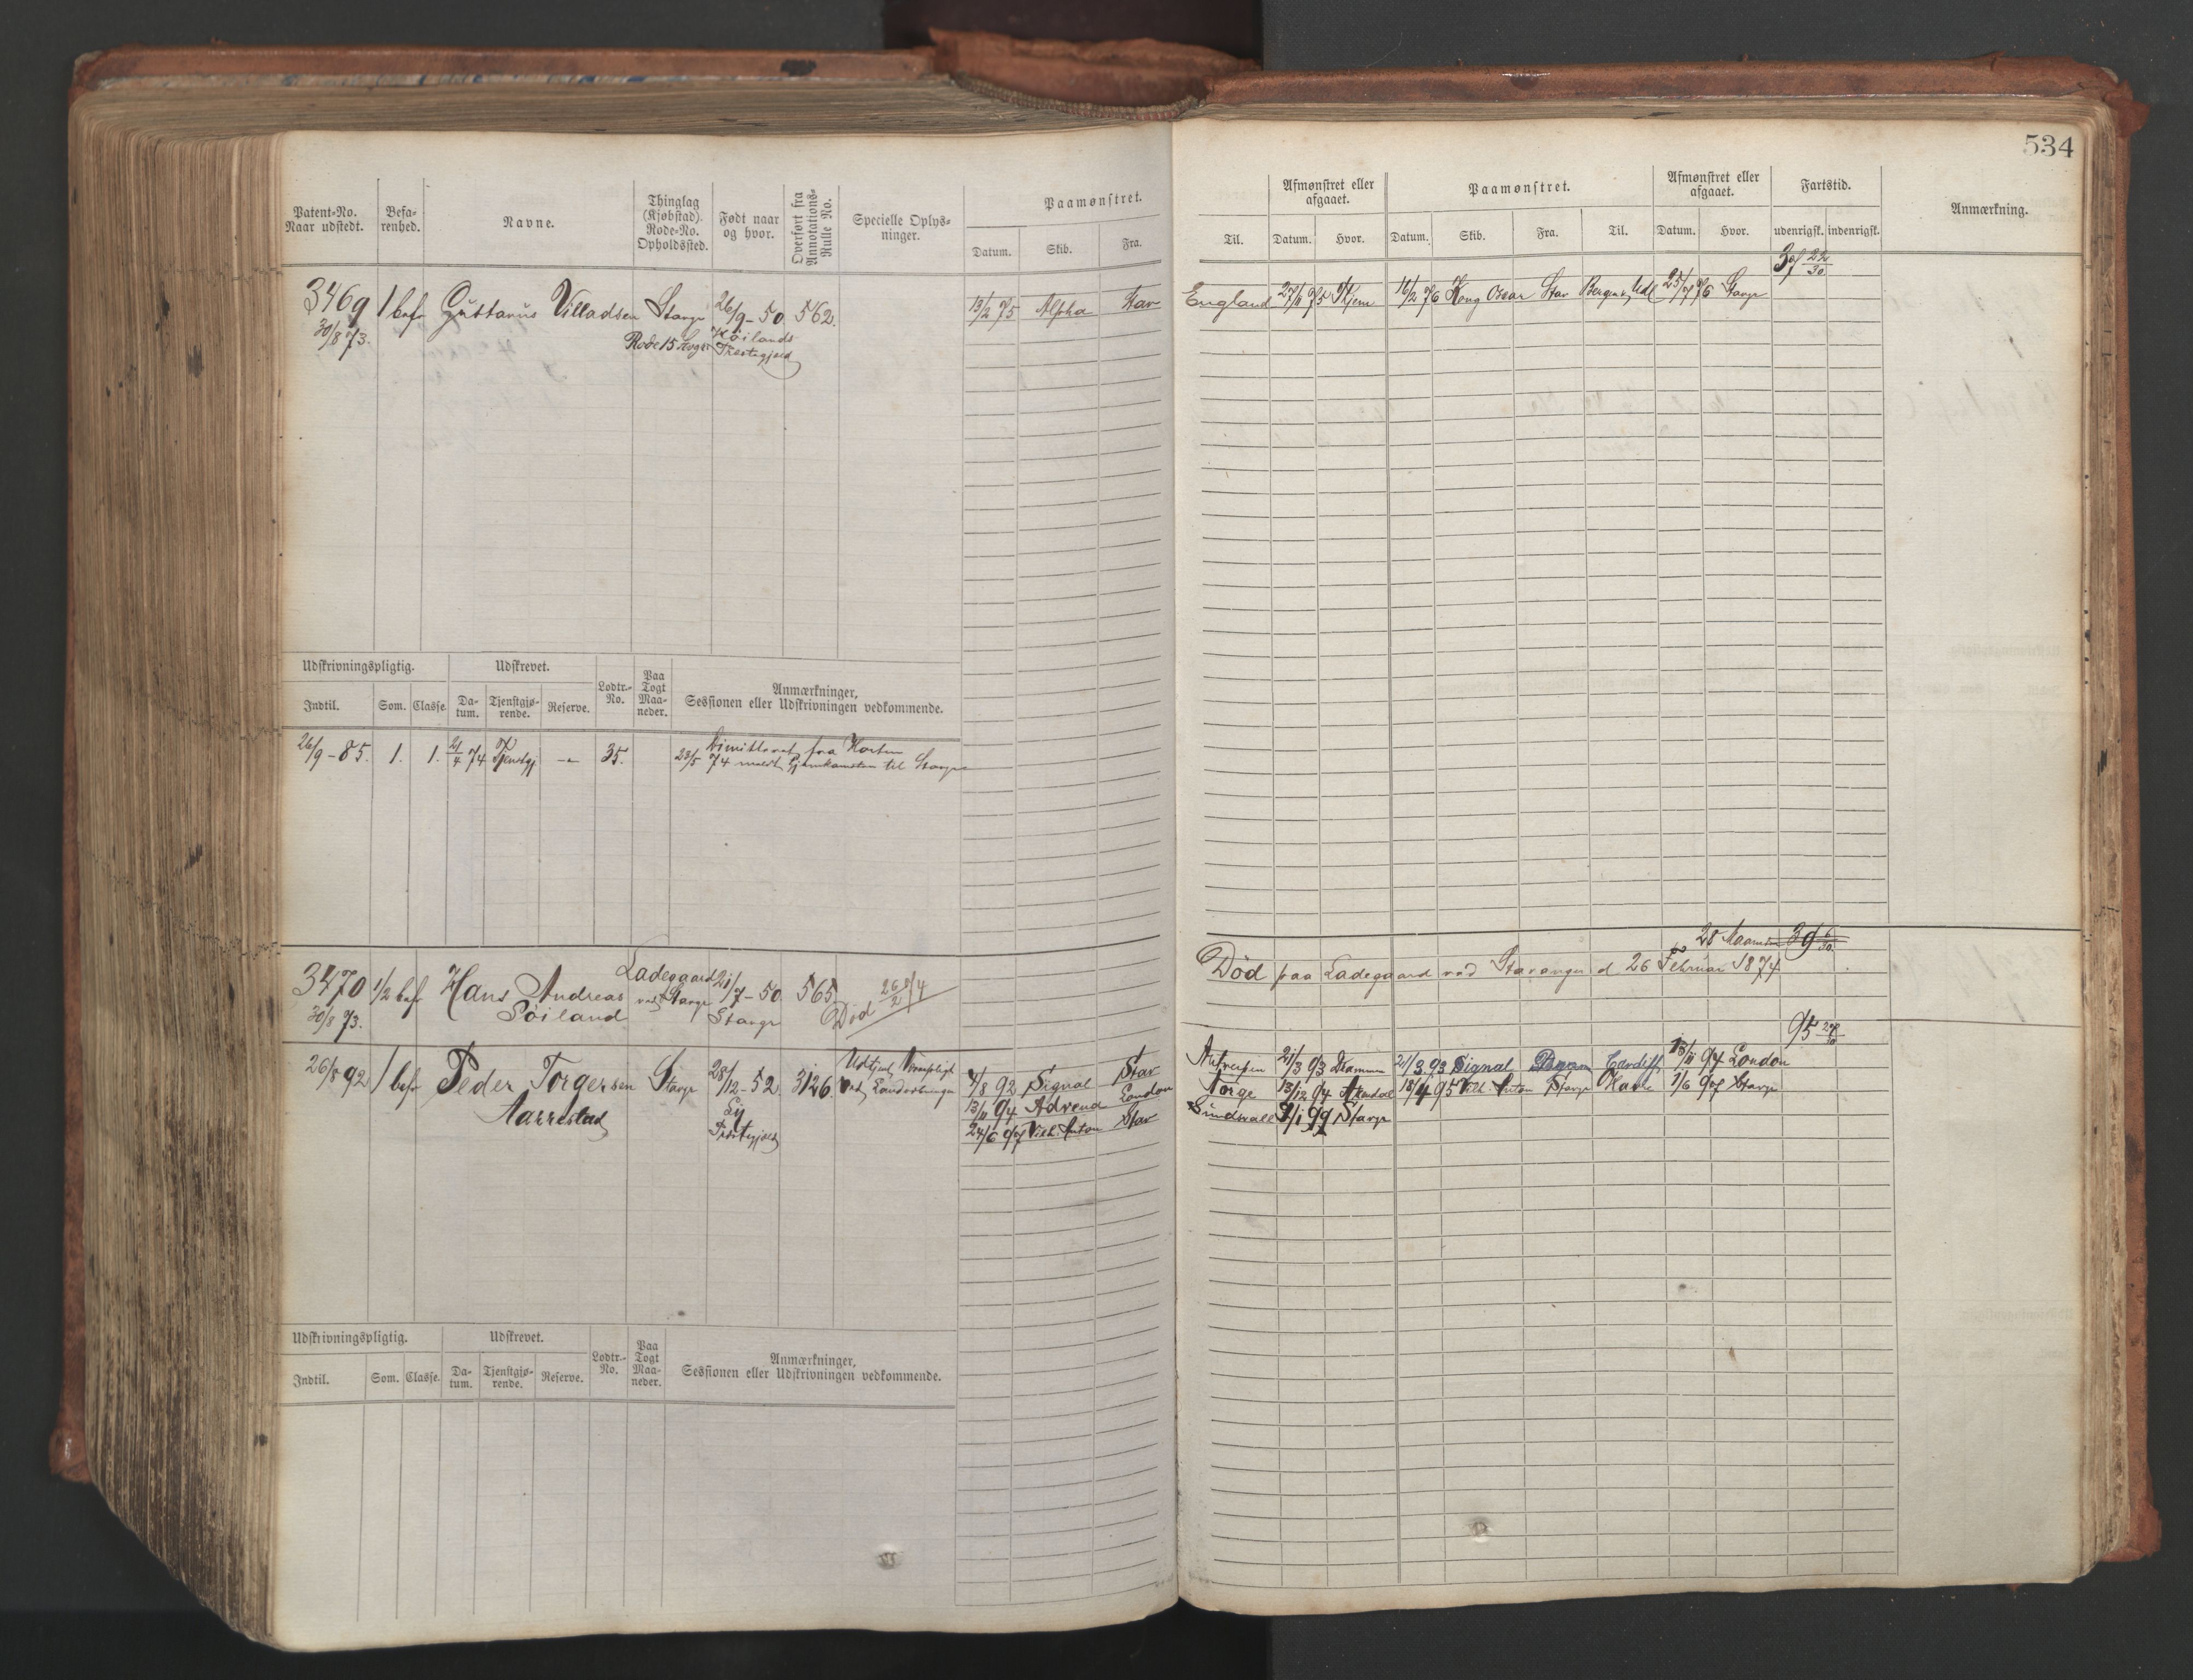 534
Patent-No. Naar udstedt.
Befa- renhed.
Navne.
Thinglag (Kjøbstad). Rode-No. Opholdssted.
Født naar og hvor.
Overført fra Annotations- Rulle No.
Specielle Oplys- ninger.
Paamønstret.
Datum. Skib. Fra.
Til.
Afmønstret eller afgaaet.
Datum. Hvor.
Paamønstret.
Datum. Skib. Fra. Til.
Afmønstret eller afgaaet.
Datum. Hvor.
Fartstid.
udenrigsk. indenrigsk.
Anmærkning.
37 22/30
3469 1 bef Gustavus Villadsen Stavgr 26/9-50 562. 13/2 75 Alpha Stav England 27/11 75 Hjem 16/2 76 Kong Oscar Stav 25/7 76 Stavgr
30/8 73. Rode 15 Høilands
Præstegjeld
Udskrivningspligtig. Udskrevet. Lodtr.- No. Paa Togt Maa- neder. Anmærkninger, Sessionen eller Udskrivningen vedkommende.
Indtil. Som. Classe. Da- tum. Tjenstgjø- rende. Reserve.
26/9-85. 1. 1. 21/4 74 Tjenstgj 35. Dimitteret fra Horten
23/5 74 meldt Hjemkomsten til Stavgr
28 Maaneder 39 6/30
3470 1/2 bef Hans Andreas Ladegaard 21/7-50 565 Død 26/2 74 Død paa Ladegaard ved Stavanger d 26 Februar 1874
30/8 73. Søiland ved Stavgr Stavgr
95
26/8 92 1 bef Peder Torgersen Stavgr 28/12-52 3126. Udtjent Værnepligt 4/8 92 Signal Stav Antverpen 21/3 93 21/3 93 Signal Cardiff 13/11 94 London
Aarrestad Ly ved Landeværnet 13/11 94 Advend London Norge 13/12 94 Arendal 18/4 95 Vilh. Anton Stavgr 1/6 97 Stavgr
Præstegjeld 24/6 97 Vilh. Anton Stav Sundsvall 7/1 99 Stavgr
Udskrivningspligtig. Udskrevet. Lodtr.- No. Paa Togt Maa- neder. Anmærkninger, Sessionen eller Udskrivningen vedkommende.
Indtil. Som. Classe. Da- tum. Tjenstgjø- rende. Reserve.